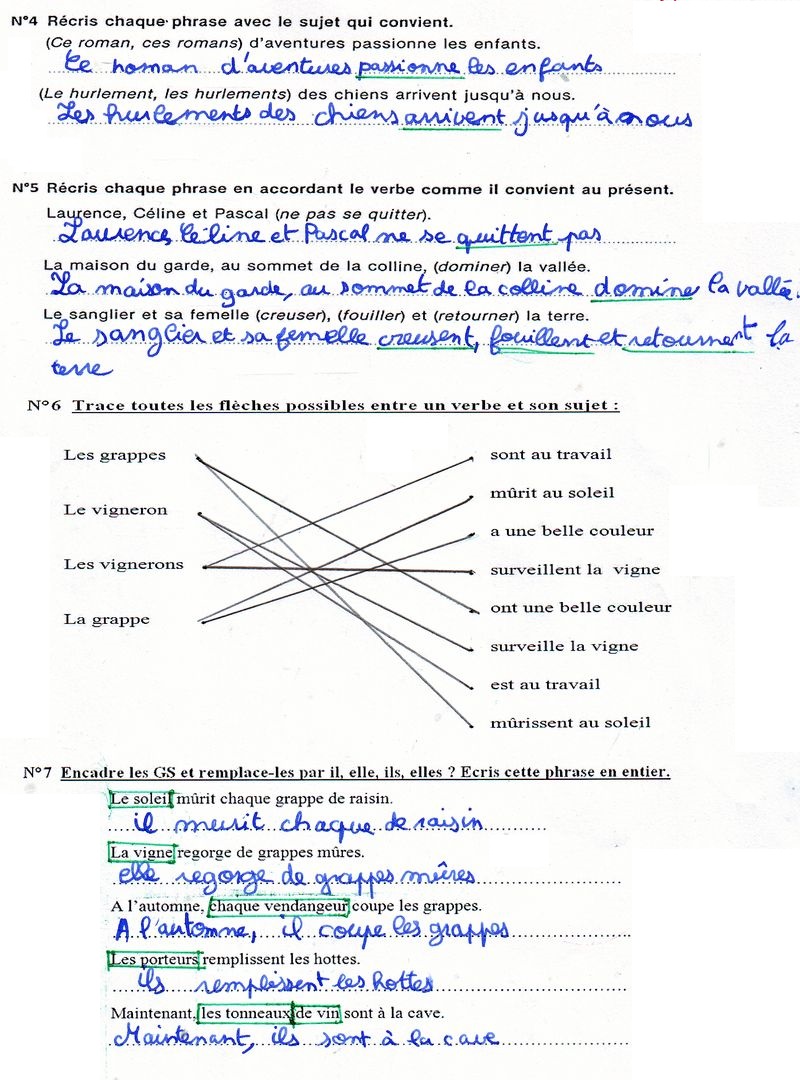 N°4 Récris chaque phrase avec le sujet qui convient.
(Ce roman, ces romans) d'aventures passionne les enfants.
Ce roman d'aventures passionne les enfants
(Le hurlement, les hurlements) des chiens arrivent jusqu'à nous.
Les hurlements des chiens arrivent jusqu'à nous
N°5 Récris chaque phrase en accordant le verbe comme il convient au présent.
Laurence, Céline et Pascal (ne pas se quitter).
Laurence, Céline et Pascal ne se quittent pas
La maison du garde, au sommet de la colline, (dominer) la vallée.
La maison du garde, au sommet de la colline domine la vallée.
Le sanglier et sa femelle (creuser), (fouiller) et (retourner) la terre.
Le sanglier et sa femelle creusent, fouillent et retournent la
terre
N°6 Trace toutes les flèches possibles entre un verbe et son sujet :
Les grappes sont au travail
mûrit au soleil
Le vigneron
a une belle couleur
Les vignerons surveillent la vigne
ont une belle couleur
La grappe
surveille la vigne
est au travail
mûrissent au soleil
N°7 Encadre les GS et remplace-les par il, elle, ils, elles ? Ecris cette phrase en entier.
Le soleil mûrit chaque grappe de raisin.
il murit chaque de raisin
La vigne regorge de grappes mûres.
elle regorge de grappes mûres
A l'automne, chaque vendangeur coupe les grappes.
A l'automne, il coupe les grappes
Les porteurs remplissent les hottes.
ils remplissent les hottes
Maintenant, les tonneaux de vin sont à la cave.
Maintenant, ils sont à la cave